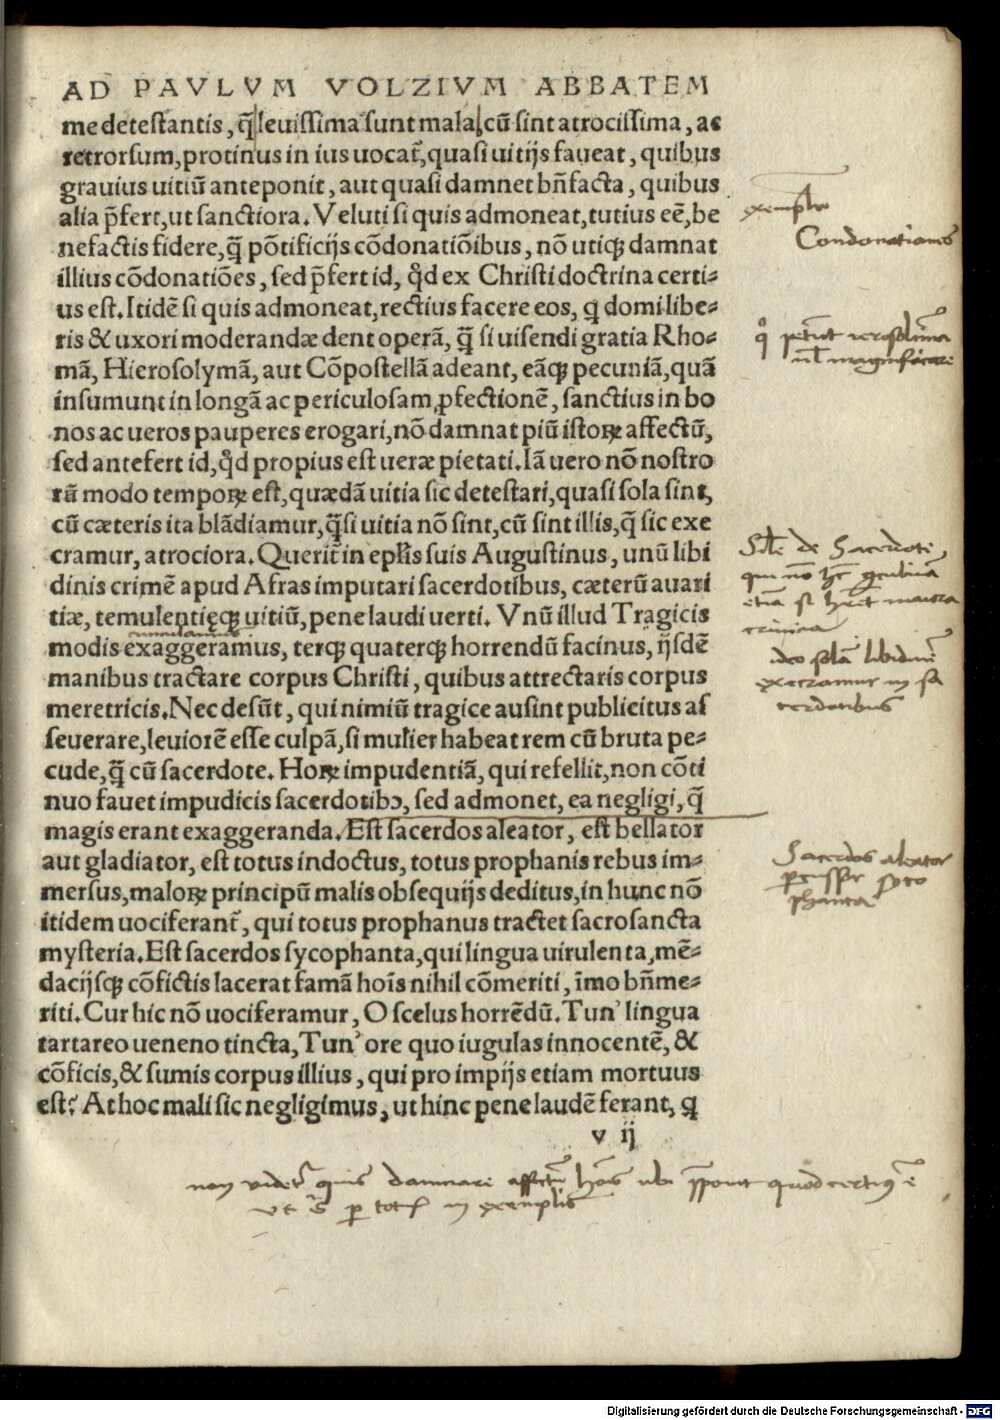 AD PAVLVM VOLZIVM ABBATEM
me detestantis, q̃ leuissima sunt mala, cũ sint atrocissima, ac
retrorsum, protinus in ius uocat̃, quasi uitijs faueat, quibus
grauius uitiũ anteponit, aut quasi damnet bñfacta, quibus
alia p̃fert, ut sanctiora. Veluti si quis admoneat, tutius eẽ, be
nefactis fidere, q̃ põtificijs cõdonatiõibus, nõ utiqꝫ damnat
illius cõdonatiões, sed p̃fert id, qd̕ ex Christi doctrina certi-
us est. Itidẽ si quis admoneat, rectius facere eos, ꝗ domi libe-
ris & uxori moderandæ dent operã, q̃ si uisendi gratia Rho-
mã, Hierosolymã, aut Cõpostellã adeant, eãqꝫ pecuniã, quã
insumunt in longã ac periculosam ꝓfectionẽ, sanctius in bo
nos ac ueros pauperes erogari, nõ damnat piũ istoꝝ affectũ,
sed antefert id, qd̕ propius est ueræ pietati. Iã uero nõ nostro
rũ modo tempoꝝ est, quædã uitia sic detestari, quasi sola sint,
cũ cæteris ita blãdiamur, q̃si uitia nõ sint, cũ sint illis, q̃ sic exe
cramur, atrociora. Querit̃ in epl̃is suis Augustinus, unũ libi
dinis crimẽ apud Afras imputari sacerdotibus, cæterũ auari
tiæ, temulentięqꝫ uitiũ, pene laudi uerti. Vnũ illud Tragicis
modis exaggeramus, terqꝫ quaterqꝫ horrendũ facinus, ijsdẽ
manibus tractare corpus Christi, quibus attrectaris corpus
meretricis. Nec desũt, qui nimiũ tragice ausint publicitus as
seuerare, leuiorẽ esse culpã, si mulier habeat rem cũ bruta pe-
cude, q̃ cũ sacerdote. Hoꝝ impudentiã, qui refellit, non cõti
nuo fauet impudicis sacerdotibꝰ, sed admonet, ea negligi, q̃
magis erant exaggeranda. Est sacerdos aleator, est bellator
aut gladiator, est totus indoctus, totus prophanis rebus im-
mersus, maloꝝ principũ malis obsequijs deditus, in hunc nõ
itidem uociferant̃, qui totus prophanus tractet sacrosancta
mysteria. Est sacerdos sycophanta, qui lingua uirulenta, mẽ-
dacijsqꝫ cõfictis lacerat famã hoĩs nihil cõmeriti, ĩmo bñme-
riti. Cur hic nõ uociferamur, O scelus horrẽdũ. Tun' lingua
tartareo ueneno tincta, Tun' ore quo iugulas innocentẽ, &
cõficis, & sumis corpus illius, qui pro impijs etiam mortuus
est? At hoc mali sic negligimus, ut hinc pene laudẽ ferant, ꝗ
v ij
exemplū
Condonationes
de Sacerdote
ideo solā libidinē
execramur in sa
cerdotibus
Sacerdos aleator
phanta
non videt̃ quis damnare affectū quod certiꝰ ē
in exemplis
Digitalisierung gefördert durch die Deutsche Forschungsgemeinschaft - DFG